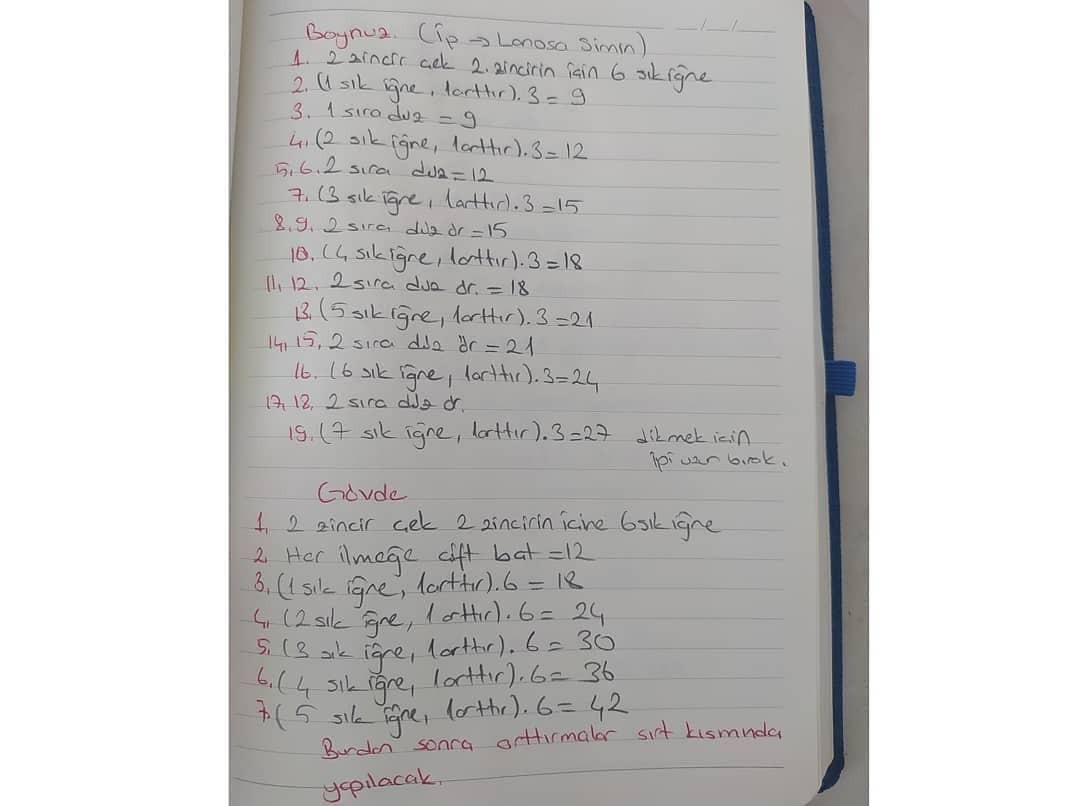 Boynuz. (İp → Lanosa Simin)
1. 2 zincir çek 2. zincirin için 6 sık iğne
2. (1 sık iğne, 1arttır). 3 = 9
3. 1 sıra düz = 9
4. (2 sık iğne, 1arttır). 3 = 12
5, 6. 2 sıra düz = 12
7. (3 sık iğne, 1arttır). 3 = 15
8. 9. 2 sıra düz ör = 15
10. (4 sık iğne, 1arttır). 3 = 18
11, 12. 2 sıra düz ör. = 18
13. (5 sık iğne, 1arttır). 3 = 21
14, 15, 2 sıra düz ör = 21
16. (6 sık iğne, 1arttır). 3 = 24
17, 18. 2 sıra düz ör.
19. (7 sık iğne, 1arttır). 3 = 27 dikmek için
ipi uzun bırak.
Gövde
1, 2 zincir çek 2 zincirin içine 6 sık iğne
2 Her ilmeğe çift bat = 12
3, (1 sık iğne, 1arttır). 6 = 18
4, (2 sık iğne, 1 arttır). 6 = 24
5, (3 sık iğne, 1arttır). 6 = 30
6. (4 sık iğne, 1arttır). 6 = 36
7. (5 sık iğne, 1arttır). 6 = 42
Burdan sonra arttırmalar sırt kısmında
yapılacak.